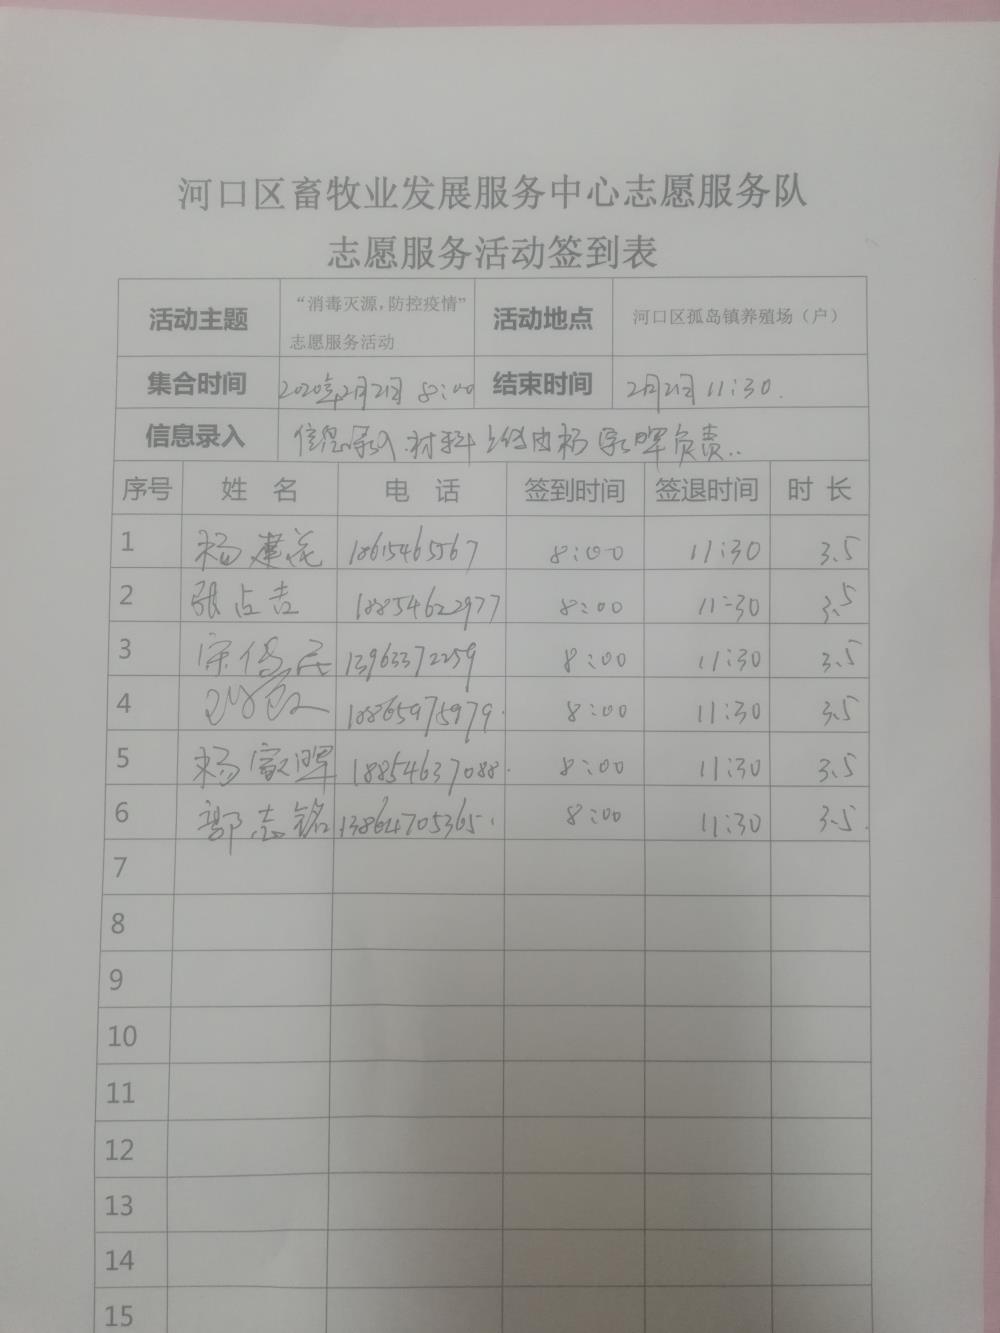 河口区畜牧业发展服务中心志愿服务队
志愿服务活动签到表
活动主题 “消毒灭源,防控疫情” 活动地点 河口区孤岛镇养殖场（户）
志愿服务活动
集合时间 2020年2月21日 8:00 结束时间 2月21日 11:30.
信息录入 信息录入.材料上传由杨家晖负责..
序号 姓 名 电 话 签到时间 签退时间 时 长
1 杨建花 18615465567 8:00 11:30 3.5
2 张占吉 18854622977 8:00 11:30 3.5
3 宋传民 13963372259 8:00 11:30 3.5
4 18865975979. 8:00 11:30 3.5
5 杨家晖 18854637088. 8:00 11:30 3.5
6 郭志铭 13864705365. 8:00 11:30 3.5.
7
8
9
10
11
12
13
14
15